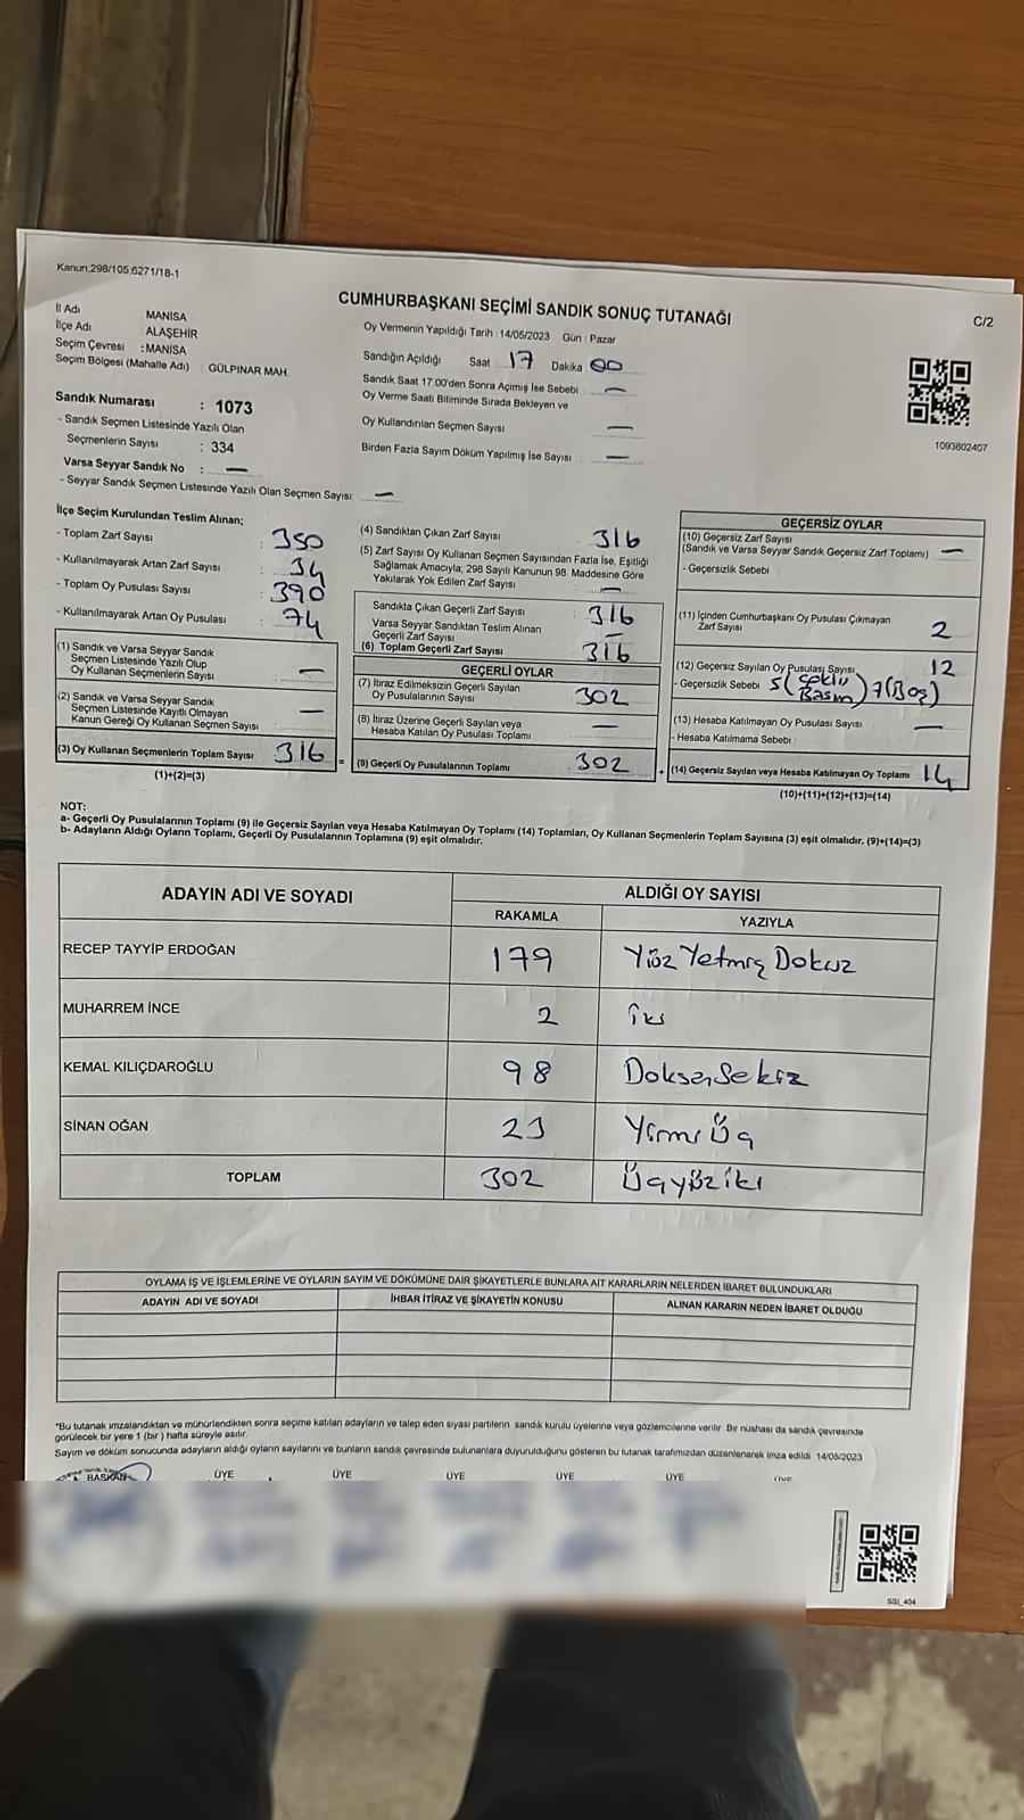 Kanun:298/105,6271/18-1
CUMHURBAŞKANI SEÇİMİ SANDIK SONUÇ TUTANAĞI
C/2
İl Adı MANİSA
İlçe Adı ALAŞEHİR
Seçim Çevresi : MANİSA
Seçim Bölgesi (Mahalle Adı) : GÜLPINAR MAH.
Sandık Numarası : 1073
- Sandık Seçmen Listesinde Yazılı Olan
Seçmenlerin Sayısı : 334
Varsa Seyyar Sandık No : —
- Seyyar Sandık Seçmen Listesinde Yazılı Olan Seçmen Sayısı: —
Oy Vermenin Yapıldığı Tarih : 14/05/2023 Gün : Pazar
Sandığın Açıldığı Saat 17 Dakika 00
Sandık Saat 17:00'den Sonra Açımış İse Sebebi —
Oy Verme Saati Bitiminde Sırada Bekleyen ve
Oy Kullandırılan Seçmen Sayısı —
Birden Fazla Sayım Döküm Yapılmış İse Sayısı —
1093602407
İlçe Seçim Kurulundan Teslim Alınan;
- Toplam Zarf Sayısı : 350
- Kullanılmayarak Artan Zarf Sayısı : 34
- Toplam Oy Pusulası Sayısı : 390
- Kullanılmayarak Artan Oy Pusulası : 74
(1) Sandık ve Varsa Seyyar Sandık
Seçmen Listesinde Yazılı Olup
Oy Kullanan Seçmenlerin Sayısı —
(2) Sandık ve Varsa Seyyar Sandık
Seçmen Listesinde Kayıtlı Olmayan
Kanun Gereği Oy Kullanan Seçmen Sayısı —
(3) Oy Kullanan Seçmenlerin Toplam Sayısı 316
(1)+(2)=(3)
(4) Sandıktan Çıkan Zarf Sayısı 316
(5) Zarf Sayısı Oy Kullanan Seçmen Sayısından Fazla İse, Eşitliği
Sağlamak Amacıyla; 298 Sayılı Kanunun 98. Maddesine Göre
Yakılarak Yok Edilen Zarf Sayısı —
Sandıkta Çıkan Geçerli Zarf Sayısı 316
Varsa Seyyar Sandıktan Teslim Alınan
Geçerli Zarf Sayısı —
(6) Toplam Geçerli Zarf Sayısı 316
GEÇERLİ OYLAR
(7) İtiraz Edilmeksizin Geçerli Sayılan
Oy Pusulalarının Sayısı 302
(8) İtiraz Üzerine Geçerli Sayılan veya
Hesaba Katılan Oy Pusulası Toplamı —
= (9) Geçerli Oy Pusulalarının Toplamı 302
GEÇERSİZ OYLAR
(10) Geçersiz Zarf Sayısı
(Sandık ve Varsa Seyyar Sandık Geçersiz Zarf Toplamı) —
- Geçersizlik Sebebi
(11) İçinden Cumhurbaşkanı Oy Pusulası Çıkmayan
Zarf Sayısı 2
(12) Geçersiz Sayılan Oy Pusulası Sayısı 12
- Geçersizlik Sebebi 5 (Basım) 7 (Boş)
(13) Hesaba Katılmayan Oy Pusulası Sayısı —
- Hesaba Katılmama Sebebi
+ (14) Geçersiz Sayılan veya Hesaba Katılmayan Oy Toplamı 14
(10)+(11)+(12)+(13)=(14)
NOT:
a- Geçerli Oy Pusulalarının Toplamı (9) ile Geçersiz Sayılan veya Hesaba Katılmayan Oy Toplamı (14) Toplamları, Oy Kullanan Seçmenlerin Toplam Sayısına (3) eşit olmalıdır. (9)+(14)=(3)
b- Adayların Aldığı Oyların Toplamı, Geçerli Oy Pusulalarının Toplamına (9) eşit olmalıdır.
ADAYIN ADI VE SOYADI ALDIĞI OY SAYISI
RAKAMLA YAZIYLA
RECEP TAYYİP ERDOĞAN 179 Yüz Yetmiş Dokuz
MUHARREM İNCE 2 İki
KEMAL KILIÇDAROĞLU 98 Doksan Sekiz
SİNAN OĞAN 23 Yirmi Üç
TOPLAM 302 Üçyüziki
OYLAMA İŞ VE İŞLEMLERİNE VE OYLARIN SAYIM VE DÖKÜMÜNE DAİR ŞİKAYETLERLE BUNLARA AİT KARARLARIN NELERDEN İBARET BULUNDUKLARI
ADAYIN ADI VE SOYADI İHBAR İTİRAZ VE ŞİKAYETİN KONUSU ALINAN KARARIN NEDEN İBARET OLDUĞU
*Bu tutanak imzalandıktan ve mühürlendikten sonra seçime katılan adayların ve talep eden siyasi partilerin sandık kurulu üyelerine veya gözlemcilerine verilir. Bir nüshası da sandık çevresinde
görülecek bir yere 1 (bir) hafta süreyle asılır.
Sayım ve döküm sonucunda adayların aldığı oyların sayılarını ve bunların sandık çevresinde bulunanlara duyurulduğunu gösteren bu tutanak tarafımızdan düzenlenerek imza edildi. 14/05/2023
BAŞKAN ÜYE ÜYE ÜYE ÜYE ÜYE ÜYE